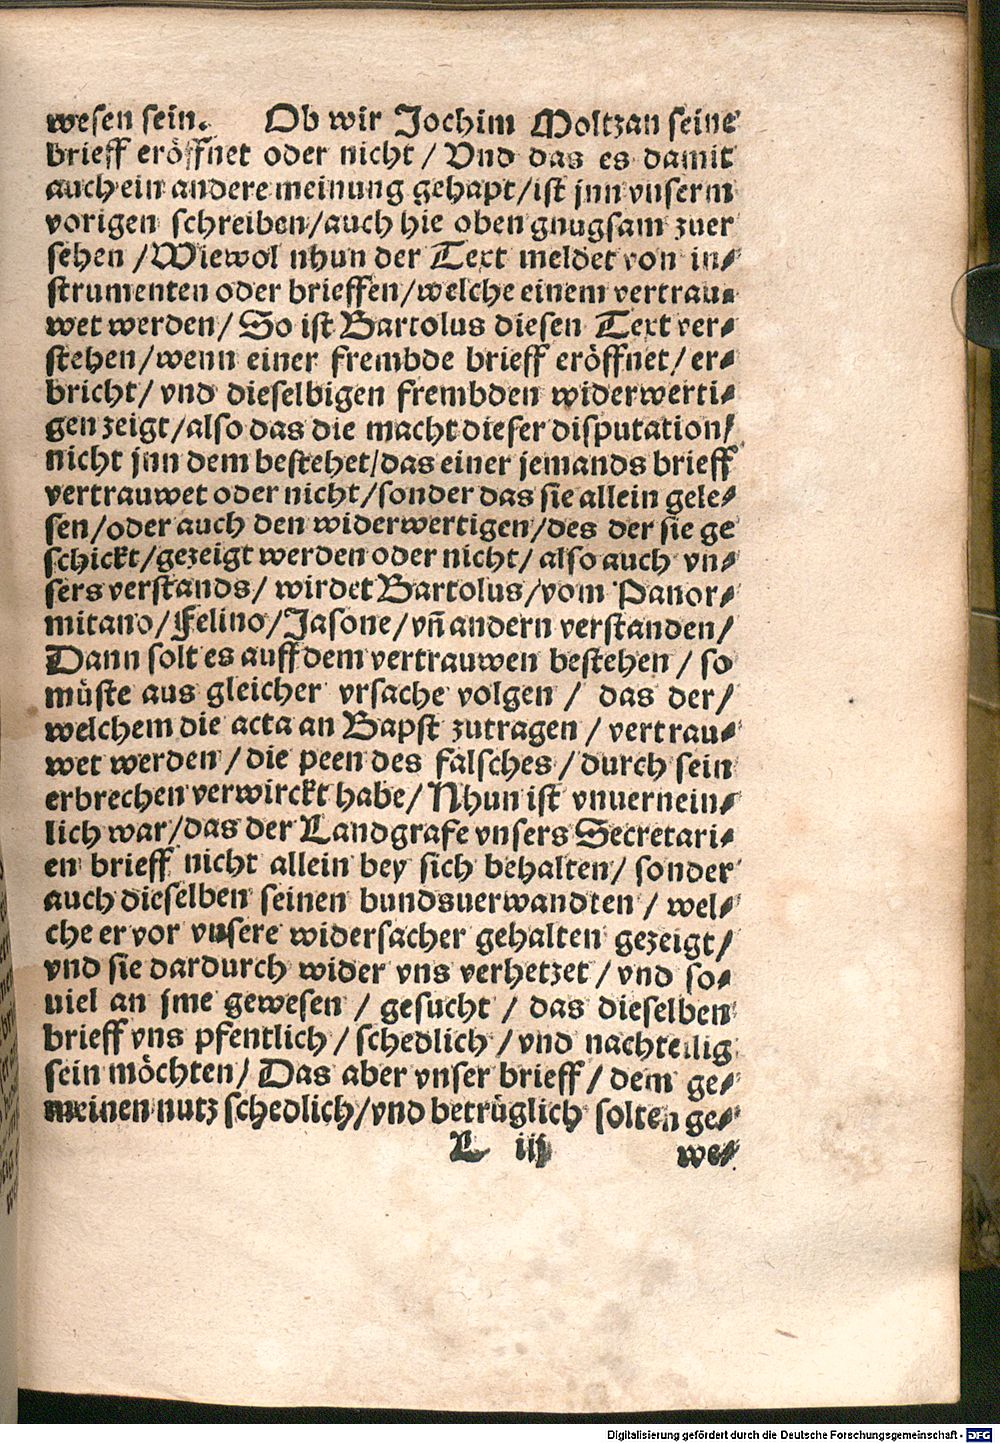 wesen sein. Ob wir Jochim Moltzan seine
brieff eröffnet oder nicht / Vnd das es damit
auch ein andere meinung gehapt/ist jnn vnserm
vorigen schreiben/auch hie oben gnugsam zuer
sehen /Wiewol nhun der Text meldet von in⸗
strumenten oder brieffen/welche einem vertrau⸗
wet werden/ So ist Bartolus diesen Text ver⸗
stehen/wenn einer frembde brieff eröffnet/ er⸗
bricht/ vnd dieselbigen frembden widerwerti⸗
gen zeigt/also das die macht dieser disputation/
nicht jnn dem bestehet/das einer jemands brieff
vertrauwet oder nicht/sonder das sie allein gele⸗
sen/oder auch den widerwertigen/des der sie ge
schickt/gezeigt werden oder nicht/ also auch vn⸗
sers verstands/ wirdet Bartolus/vom Panor⸗
mitano/Felino/Jasone/vñ andern verstanden/
Dann solt es auff dem vertrauwen bestehen / so
müste aus gleicher vrsache volgen / das der/
welchem die acta an Bapst zutragen / vertrau⸗
wet werden / die peen des falsches / durch sein
erbrechen verwirckt habe/ Nhun ist vnuernein⸗
lich war/das der Landgrafe vnsers Secretari⸗
en brieff nicht allein bey sich behalten/ sonder
auch dieselben seinen bundsuerwandten / wel⸗
che er vor vnsere widersacher gehalten gezeigt/
vnd sie dardurch wider vns verhetzet / vnd so⸗
uiel an jme gewesen / gesucht / das dieselben
brieff vns pfentlich / schedlich / vnd nachteilig
sein möchten/ Das aber vnser brieff / dem ge⸗
meinen nutz schedlich/vnd betrüglich solten ge⸗
L iij we⸗
Digitalisierung gefördert durch die Deutsche Forschungsgemeinschaft - DFG